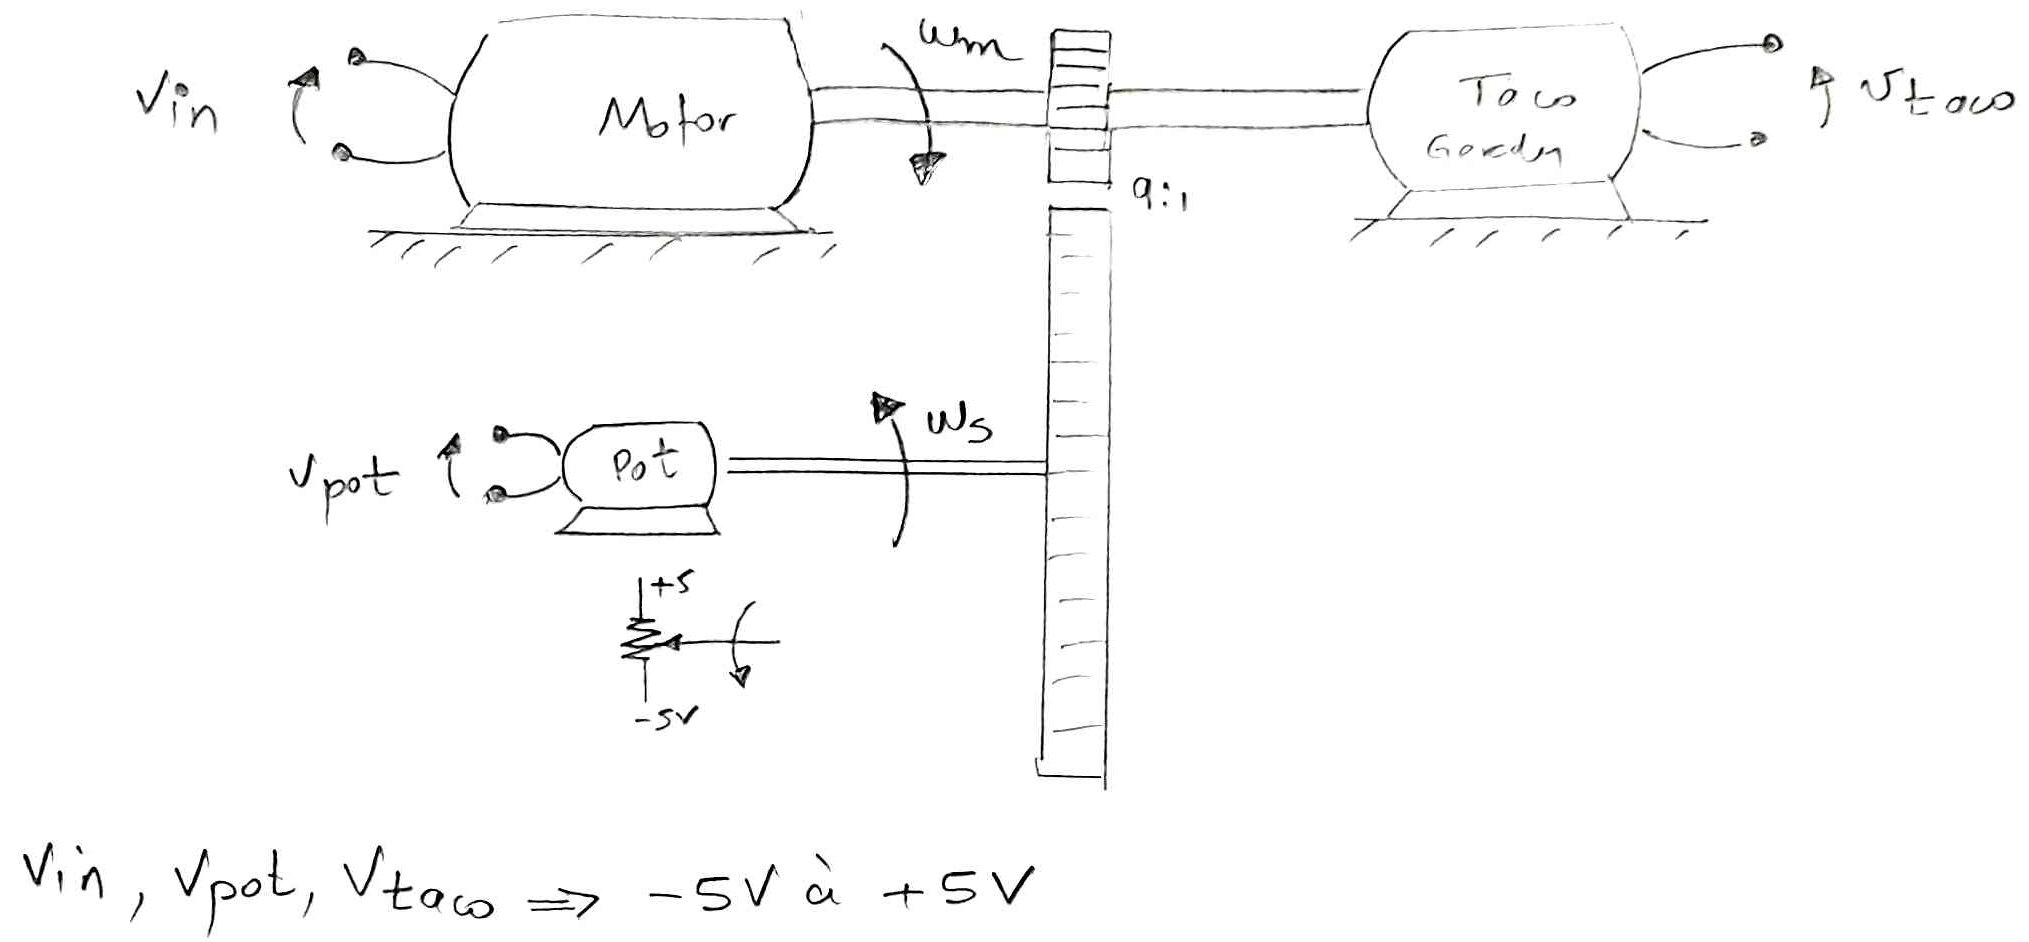 Vin
Motor
ωm
Taco
Vtaco
9:1
Vpot
Pot
ωs
+5
-5V
Vin, Vpot, Vtaco => -5V à +5V